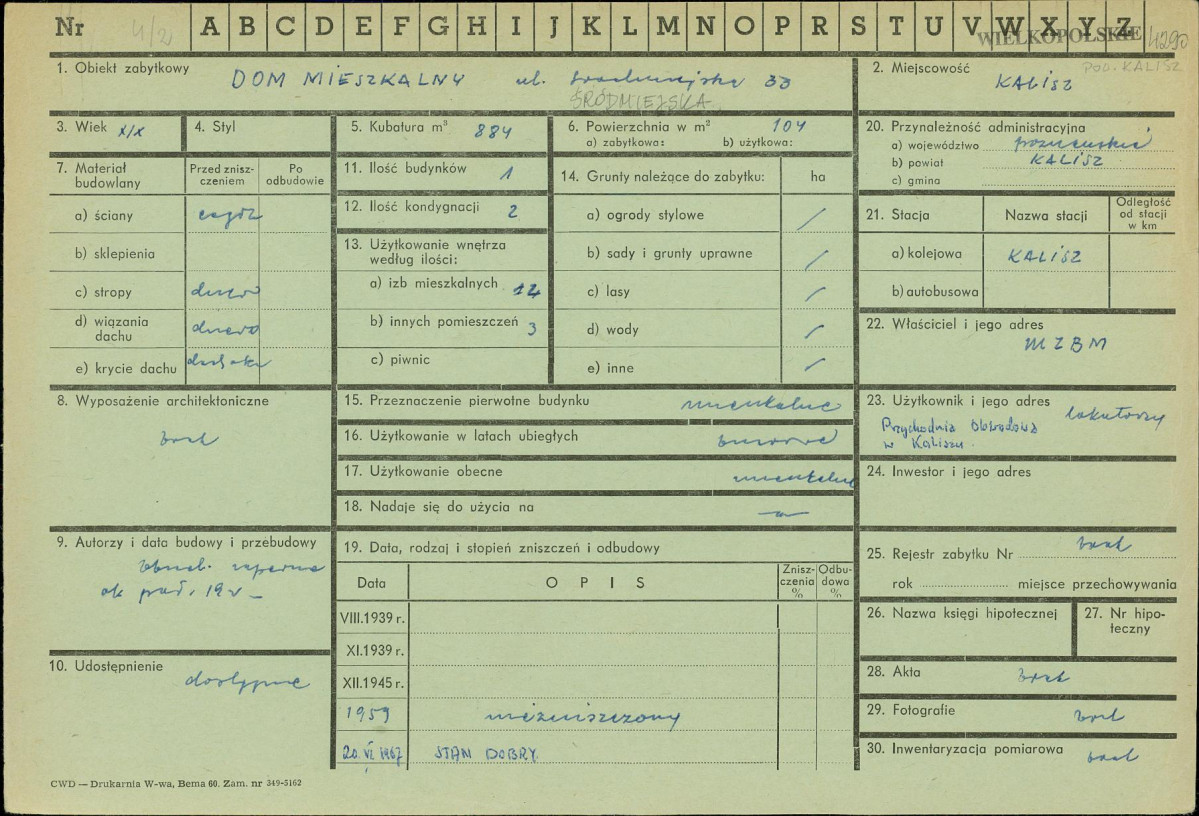 Nr 4/21 A B C D E F G H I J K L M N O P R S T U V W X Y Z WIELKOPOLSKIE 4290
1. Obiekt zabytkowy DOM MIESZKALNY ul. Śródmiejska 33
ŚRÓDMIEJSKA
2. Miejscowość POW. KALISZ
KALISZ
3. Wiek XIX
4. Styl
5. Kubatura m³ 884
6. Powierzchnia w m² 104
a) zabytkowa: b) użytkowa:
20. Przynależność administracyjna
a) województwo poznańskie
b) powiat KALISZ
c) gmina
7. Materiał budowlany
Przed znisz-
czeniem
Po
odbudowie
a) ściany cegła
b) sklepienia
c) stropy drewno
d) wiązania
dachu drewno
e) krycie dachu dachówka
11. Ilość budynków 1
12. Ilość kondygnacji 2
13. Użytkowanie wnętrza
według ilości:
a) izb mieszkalnych 12
b) innych pomieszczeń 3
c) piwnic
14. Grunty należące do zabytku: ha
a) ogrody stylowe /
b) sady i grunty uprawne /
c) lasy /
d) wody /
e) inne /
21. Stacja Nazwa stacji
Odległość
od stacji
w km
a) kolejowa KALISZ
b) autobusowa
22. Właściciel i jego adres
MZBM
8. Wyposażenie architektoniczne
brak
15. Przeznaczenie pierwotne budynku mieszkalne
16. Użytkowanie w latach ubiegłych biurowe
17. Użytkowanie obecne mieszkalne
18. Nadaje się do użycia na
23. Użytkownik i jego adres
lokatorzy
Przychodnia Obwodowa
w Kaliszu.
24. Inwestor i jego adres
9. Autorzy i data budowy i przebudowy
ok. 19 w
10. Udostępnienie
dostępne
19. Data, rodzaj i stopień zniszczeń i odbudowy
Data OPIS
Znisz-
czenia
%
Odbu-
dowa
%
VIII.1939 r.
XI.1939 r.
XII.1945 r.
1959 niezniszczony
20. VI. 1967 STAN DOBRY.
25. Rejestr zabytku Nr brak
rok miejsce przechowywania
26. Nazwa księgi hipotecznej
27. Nr hipo-
teczny
28. Akta brak
29. Fotografie brak
30. Inwentaryzacja pomiarowa brak
CWD — Drukarnia W-wa, Bema 60. Zam. nr 349-5162